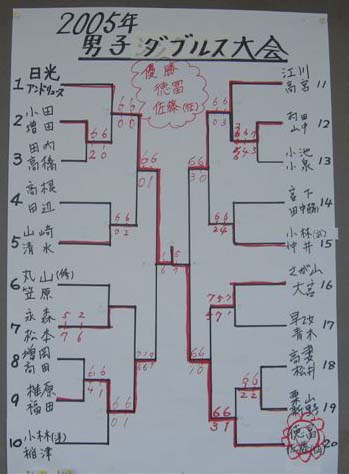 2005年
男子ダブルス大会
優勝
徳冨
佐藤(仙)
1 日光
アンドリュース
2 小田
増田
3 田内
高橋
4 高根
田辺
5 山崎
清水
6 丸山(修)
笠原
7 永森
松本
8 増岡
高田
9 椎原
福田
10 小林(達)
稲津
江川 11
高宮
村田 12
山中
小池 13
小泉
宮下 14
田中
小林(武) 15
仲井
さが山 16
大宮
早坂 17
青木
高妻 18
松井
栗山 19
新野
徳冨 20
佐藤(仙)
6 6
2 0
6 6
0 2
5 2
7 6
6 6
4 1
6 6
0 1
6 6
0 1
6 6
0 3
6 6
2 4
6 6
3 0
7 5 7
5 7 1
6 6
2 2
6 6
3 1